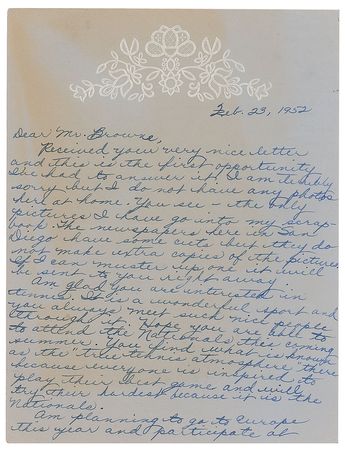 Feb. 23, 1952
Dear Mr. Browne,
Received your very nice letter
and this is the first opportunity
I've had to answer it. I am terribly
sorry but I do not have any photos
here at home. You see - the only
pictures I have go into my scrap-
book. The newspapers here in San
Diego have some cuts but they do
not make extra copies of the pictures.
If I can muster up one it will
be sent to you right away.
Am glad you are interested in
tennis. It is a wonderful sport and
you always meet such nice people
through it. Hope you are able to
to attend the Nationals this coming
summer. You find what is known
as the "true tennis atmosphere" there
because everyone is inspired to
play their best game and will
try their hardest because it is the
Nationals.
Am planning to go to Europe
this year and participate at